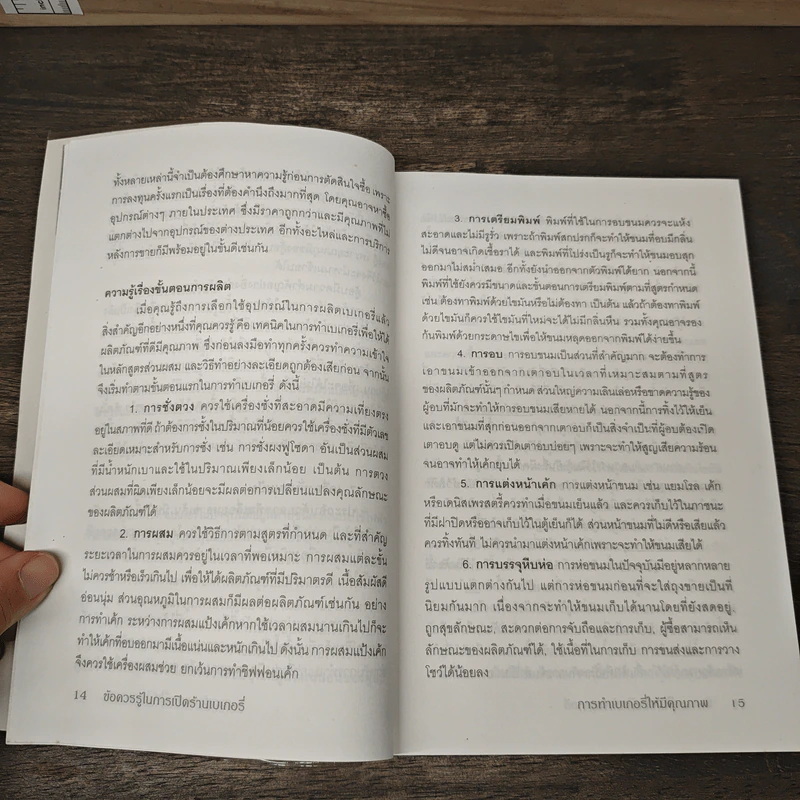 ทั้งหลายเหล่านี้จำเป็นต้องศึกษาหาความรู้ก่อนการตัดสินใจซื้อ เพราะ
การลงทุนครั้งแรกเป็นเรื่องที่ต้องคำนึงถึงมากที่สุด โดยคุณอาจหาซื้อ
อุปกรณ์ต่างๆ ภายในประเทศ ซึ่งมีราคาถูกกว่าและมีคุณภาพที่ไม่
แตกต่างไปจากอุปกรณ์ของต่างประเทศ อีกทั้งอะไหล่และการบริการ
หลังการขายก็มีพร้อมอยู่ในขั้นดีเช่นกัน
ความรู้เรื่องขั้นตอนการผลิต
เมื่อคุณรู้ถึงการเลือกใช้อุปกรณ์ในการผลิตเบเกอรี่แล้ว
สิ่งสำคัญอีกอย่างหนึ่งที่คุณควรรู้ คือ เทคนิคในการทำเบเกอรี่เพื่อให้ได้
ผลิตภัณฑ์ที่ดีมีคุณภาพ ซึ่งก่อนลงมือทำทุกครั้งควรทำความเข้าใจ
ในหลักสูตรส่วนผสม และวิธีทำอย่างละเอียดถูกต้องเสียก่อน จากนั้น
จึงเริ่มทำตามขั้นตอนแรกในการทำเบเกอรี่ ดังนี้
1. การชั่งตวง ควรใช้เครื่องชั่งที่สะอาดมีความเที่ยงตรง
อยู่ในสภาพที่ดี ถ้าต้องการชั่งในปริมาณที่น้อยควรใช้เครื่องชั่งที่มีตัวเลข
ละเอียดเหมาะสำหรับการชั่ง เช่น การชั่งผงฟูโซดา อันเป็นส่วนผสม
ที่มีน้ำหนักเบาและใช้ในปริมาณเพียงเล็กน้อย เป็นต้น การตวง
ส่วนผสมที่ผิดเพียงเล็กน้อยจะมีผลต่อการเปลี่ยนแปลงคุณลักษณะ
ของผลิตภัณฑ์ได้
2. การผสม ควรใช้วิธีการตามสูตรที่กำหนด และที่สำคัญ
ระยะเวลาในการผสมควรอยู่ในเวลาที่พอเหมาะ การผสมแต่ละขั้น
ไม่ควรช้าหรือเร็วเกินไป เพื่อให้ได้ผลิตภัณฑ์ที่มีปริมาตรดี เนื้อสัมผัสดี
อ่อนนุ่ม ส่วนอุณหภูมิในการผสมก็มีผลต่อผลิตภัณฑ์เช่นกัน อย่าง
การทำเค้ก ระหว่างการผสมแป้งเค้กหากใช้เวลาผสมนานเกินไปก็จะ
ทำให้เค้กที่อบออกมามีเนื้อแน่นและหนักเกินไป ดังนั้น การผสมแป้งเค้ก
จึงควรใช้เครื่องผสมช่วย ยกเว้นการทำชิฟฟ่อนเค้ก
14 ข้อควรรู้ในการเปิดร้านเบเกอรี่
3. การเตรียมพิมพ์ พิมพ์ที่ใช้ในการอบขนมควรจะแห้ง
สะอาดและไม่มีรูรั่ว เพราะถ้าพิมพ์สกปรกก็จะทำให้ขนมที่อบมีกลิ่น
ไม่ดีจนอาจเกิดเชื้อราได้ และพิมพ์ที่โปร่งเป็นรูก็จะทำให้ขนมอบสุก
ออกมาไม่สม่ำเสมอ อีกทั้งยังนำออกจากตัวพิมพ์ได้ยาก นอกจากนี้
พิมพ์ที่ใช้ยังควรมีขนาดและขั้นตอนการเตรียมพิมพ์ตามที่สูตรกำหนด
เช่น ต้องทาพิมพ์ด้วยไขมันหรือไม่ต้องทา เป็นต้น แล้วถ้าต้องทาพิมพ์
ด้วยไขมันก็ควรใช้ไขมันที่ใหม่จะได้ไม่มีกลิ่นหืน รวมทั้งคุณอาจรอง
ก้นพิมพ์ด้วยกระดาษไขเพื่อให้ขนมหลุดออกจากพิมพ์ได้ง่ายขึ้น
4. การอบ การอบขนมเป็นส่วนที่สำคัญมาก จะต้องทำการ
เอาขนมเข้าออกจากเตาอบในเวลาที่เหมาะสมตามที่สูตร
ของผลิตภัณฑ์นั้นๆ กำหนด ส่วนใหญ่ความเลินเล่อหรือขาดความรู้ของ
ผู้อบที่มักจะทำให้การอบขนมเสียหายได้ นอกจากนี้การทิ้งไว้ให้เย็น
และเอาขนมที่สุกก่อนออกจากเตาอบก็เป็นสิ่งจำเป็นที่ผู้อบต้องเปิด
เตาอบดู แต่ไม่ควรเปิดเตาอบบ่อยๆ เพราะจะทำให้สูญเสียความร้อน
จนอาจทำให้เค้กยุบได้
5. การแต่งหน้าเค้ก การแต่งหน้าขนม เช่น แยมโรล เค้ก
หรือเดนิสเพรสตรี้ควรทำเมื่อขนมเย็นแล้ว และควรเก็บไว้ในภาชนะ
ที่มีฝาปิดหรืออาจเก็บไว้ในตู้เย็นก็ได้ ส่วนหน้าขนมที่ไม่ดีหรือเสียแล้ว
ควรทิ้งทันที ไม่ควรนำมาแต่งหน้าเค้กเพราะจะทำให้ขนมเสียได้
6. การบรรจุหีบห่อ การห่อขนมในปัจจุบันมีอยู่หลากหลาย
รูปแบบแตกต่างกันไป แต่การห่อขนมก่อนที่จะใส่ถุงขายเป็นที่
นิยมกันมาก เนื่องจากจะทำให้ขนมเก็บได้นานโดยที่ยังสดอยู่,
ถูกสุขลักษณะ, สะดวกต่อการจับถือและการเก็บ, ผู้ซื้อสามารถเห็น
ลักษณะของผลิตภัณฑ์ได้, ใช้เนื้อที่ในการเก็บ การขนส่งและการวาง
โชว์ได้น้อยลง
การทำเบเกอรี่ให้มีคุณภาพ 15